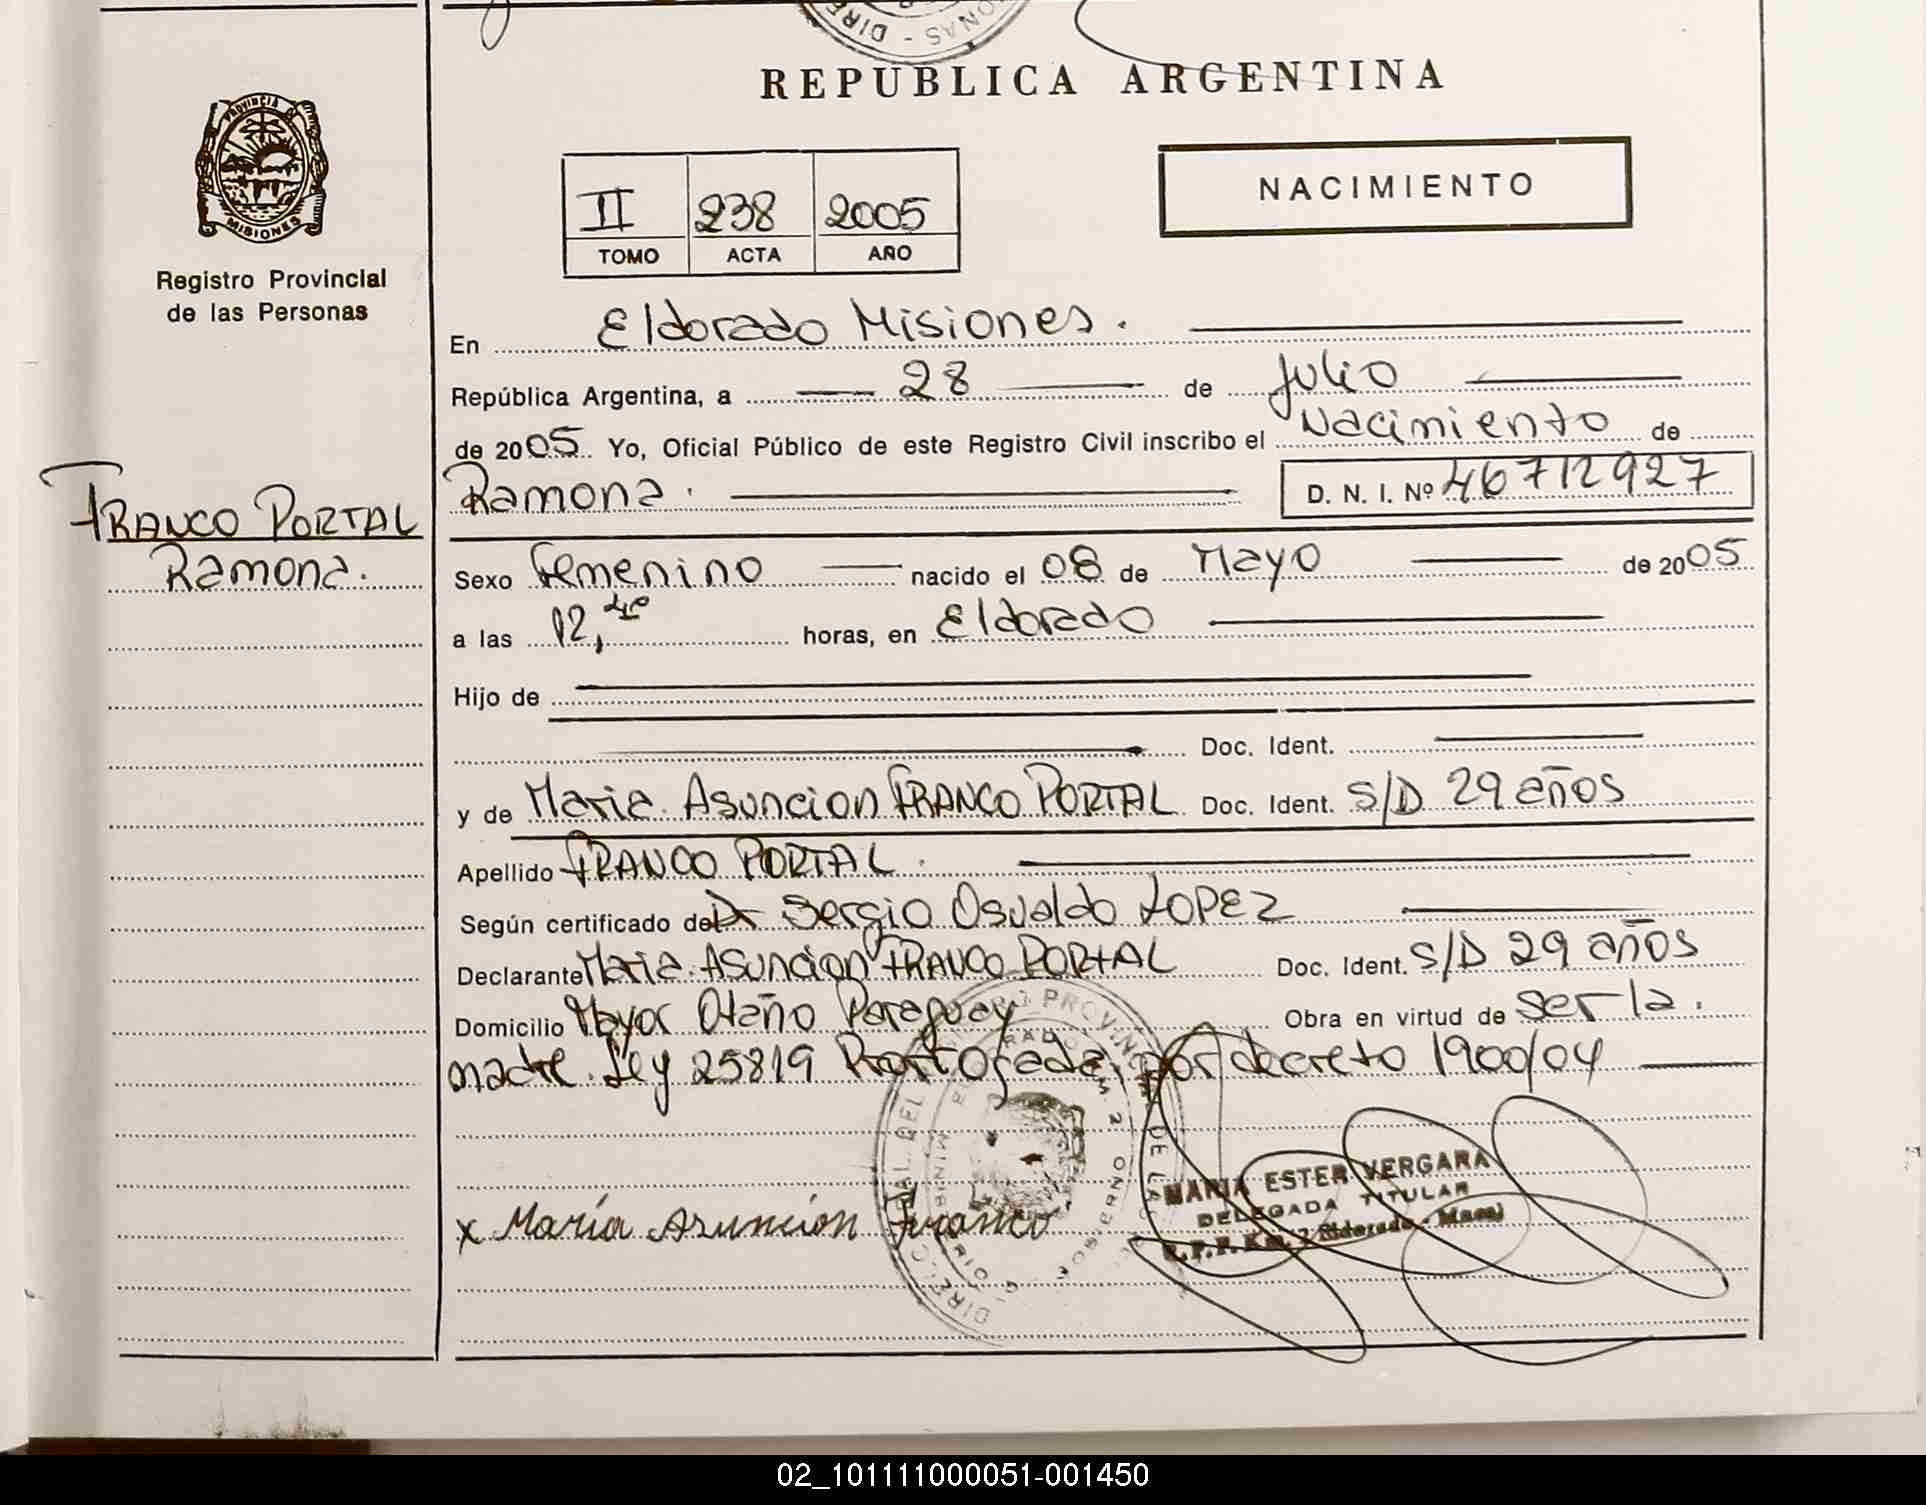 REPUBLICA ARGENTINA
PROVINCIA
MISIONES
Registro Provincial
de las Personas
II 238 2005
TOMO ACTA AÑO
NACIMIENTO
En Eldorado Misiones.
República Argentina, a 28 de Julio
de 2005. Yo, Oficial Público de este Registro Civil inscribo el Nacimiento de
Ramona. D. N. I. Nº 46712927
FRANCO PORTAL
Ramona.
Sexo Femenino nacido el 08 de Mayo de 2005
a las 12,40 horas, en Eldorado
Hijo de
Doc. Ident.
y de Maria Asuncion FRANCO PORTAL Doc. Ident. S/D 29 años
Apellido FRANCO PORTAL.
Según certificado del Dr Sergio Osvaldo LOPEZ
Declarante Maria Asuncion FRANCO PORTAL Doc. Ident. S/D 29 años
Domicilio Mayor Otaño Paraguay Obra en virtud de ser la
madre. Ley 25819 Prorrogada por decreto 1900/04
MARIA ESTER VERGARA
DELEGADA TITULAR
x María Asunción Franco
02_101111000051-001450